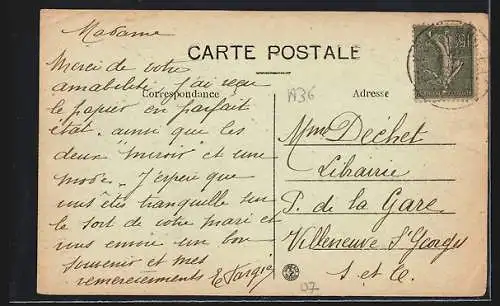 Madame
CARTE POSTALE
Correspondance
Adresse
1936
Merci de votre
amabilité J'ai reçu
le papier en parfait
état. ainsi que les
deux "miroir" et une
mode. J'espère que
vous êtes tranquille sur
le sort de votre mari et
vous envoie un bon
souvenir et mes
remerciements
Mme Déchet
Librairie
P. de la Gare
Villeneuve St Georges
S. et O.
07